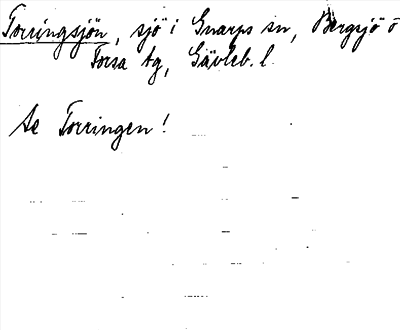 Torringsjön, sjö i Gnarps sn, Bergsjö o
Forsa tg, Gävleb. l.
Se Torringen!